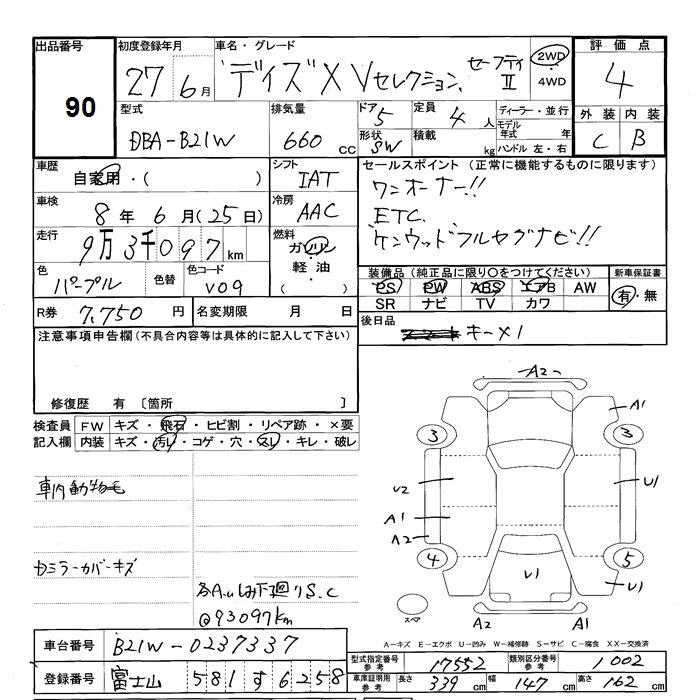 出品番号
90
初度登録年月
27年6月
車名・グレード
デイズ X Vセレクション、セーフティII
2WD
4WD
評価点
4
外装 内装
C B
型式
DBA-B21W
排気量
660 cc
ドア
5
形状
SW
定員
4人
積載
kg
ディーラー・並行
モデル年式 年
ハンドル 左・右
車歴
自家用・( )
シフト
IAT
車検
8年6月(25日)
冷房
AAC
走行
9万3千097km
燃料
ガソリン
軽油
色
パープル
色替
色コード
V09
R券 7,750円
名変期限 月 日
セールスポイント (正常に機能するものに限ります)
ワンオーナー!!
ETC.
ケンウッドフルセグナビ!!
装備品 (純正品に限り○をつけてください)
PS PW ABS エアB AW
SR ナビ TV カワ
新車保証書
有・無
後日品
キー×1
注意事項申告欄(不具合内容等は具体的に記入して下さい)
修復歴 有 〔箇所 〕
検査員記入欄
FW キズ・飛石・ヒビ割・リペア跡・×要
内装 キズ・汚レ・コゲ・穴・スレ・キレ・破レ
車内動物毛
ミラーカバーキズ
下廻りS.C
@93097km
A2
A1
3
3
U2
A1
A2
U1
4
5
U1
U1
スペア
A2
A1
A-キズ E-エクボ U-凹み W-補修跡 S-サビ C-腐食 XX-交換済
車台番号
B21W-0237337
登録番号
富士山 581 す 6258
型式指定番号 参考
17552
類別区分番号 参考
1002
車庫証明用 参考
長さ 339 cm
幅 147 cm
高さ 162 cm